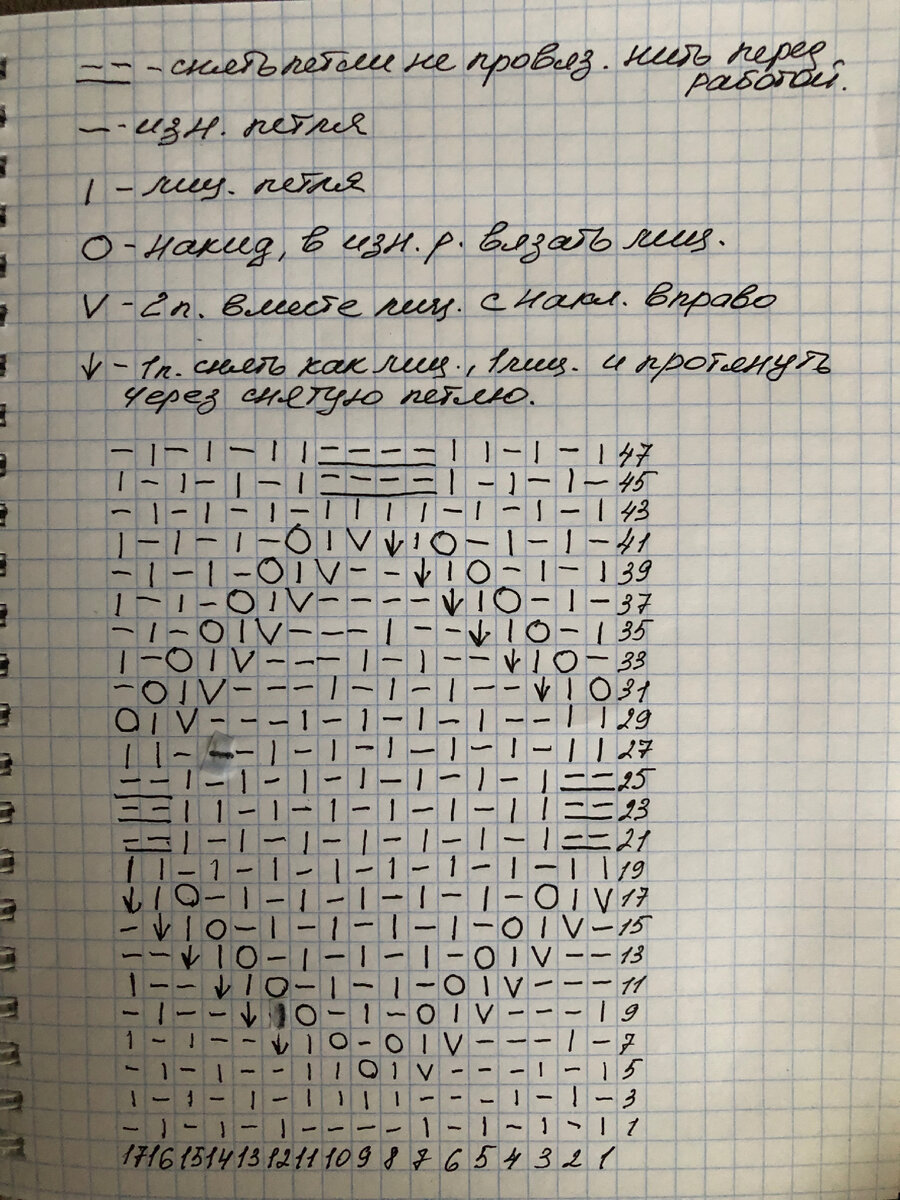 == - снять петли не провяз. нить перед
работой.
— - изн. петля
| - лиц. петля
O - накид, в изн. р. вязать лиц.
V - 2п. вместе лиц. с накл. вправо
↓ - 1п. снять как лиц., 1 лиц. и протянуть
через снятую петлю.
– | – | – | | – – – – | | – | – | 47
| – | – | – | – – – – | – | – | – 45
– | – | – | – | | | | – | – | – | 43
| – | – | – O | V ↓ | O – | – | – 41
– | – | – O | V – – ↓ | O – | – | 39
| – | – O | V – – – – ↓ | O – | – 37
– | – O | V – – – | – – ↓ | O – | 35
| – O | V – – – | – | – – ↓ | O – 33
– O | V – – – | – | – | – – ↓ | O 31
O | V – – – | – | – | – | – – | | 29
| | – – – | – | – | – | – | – | | 27
– – | – | – | – | – | – | – | – – 25
– – | | – | – | – | – | – | | – – 23
– – | – | – | – | – | – | – | – – 21
| | – | – | – | – | – | – | – | | 19
↓ | O – | – | – | – | – | – O | V 17
– ↓ | O – | – | – | – | – O | V – 15
– – ↓ | O – | – | – | – O | V – – 13
| – – ↓ | O – | – | – O | V – – – 11
– | – – ↓ | O – | – O | V – – – | 9
| – | – – ↓ | O – O | V – – – | – 7
– | – | – – | | O | V – – – | – | 5
| – | – | – | | | | – – – | – | – 3
– | – | – | – – – – | – | – | – | 1
17 16 15 14 13 12 11 10 9 8 7 6 5 4 3 2 1